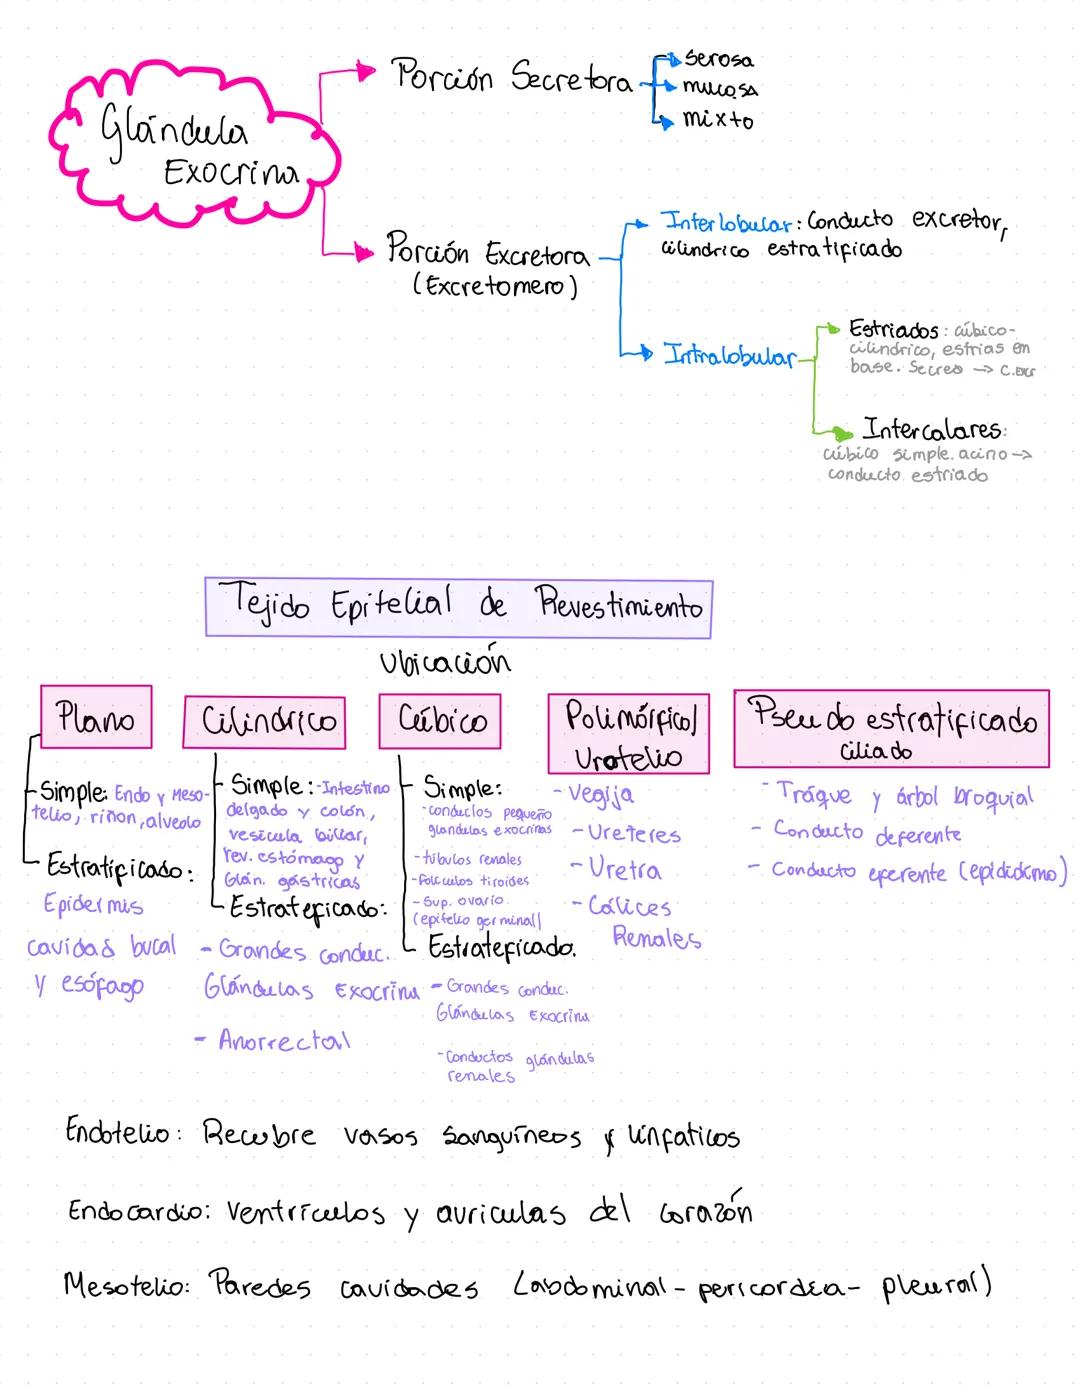 Glándula
Exocrina
Porción Secretora
serosa
mucosa
mixto
Porción Excretora
(Excretomero)
Interlobular: Conducto excretor,
cilindrico estratificado
Intralobular
Estriados: cúbico-
cilindrico, estrias en
base. Secreo → C.exc
Intercalares:
cúbico simple. acino →
conducto estriado
Tejido Epitelial de Revestimiento
Ubicación
Plano
Simple: Endo y Meso-
telio, riñon, alveolo
Estratificado:
Epidermis
cavidad bucal
y esófago
Cilindrico
Simple: -Intestino
delgado y colón,
vesicula biliar,
rev. estómago y
Glán. gástricas
Estrateficado:
- Grandes conduc.
Glándulas Exocrina
- Anorrectal
Cúbico
Simple:
-conductos pequeño
glandulas exocrinas
-túbulos renales
-folículos tiroides
-Sup. ovario
(epitelio germinal)
Estrateficado.
-Grandes conduc.
Glándulas Exocrina
-Conductos glándulas
renales
Polimórfico/
Urotelio
-Vegija
-Ureteres
-Uretra
-Cálices
Renales
Pseudoestratificado
ciliado
- Tráque y árbol broquial
- Conducto deferente
- Conducto eferente (epidídimo)
Endotelio: Recubre vasos sanguíneos y linfaticos
Endocardio: Ventrículos y auriculas del corazón
Mesotelio: Paredes cavidades (abdominal - pericordea - pleural)